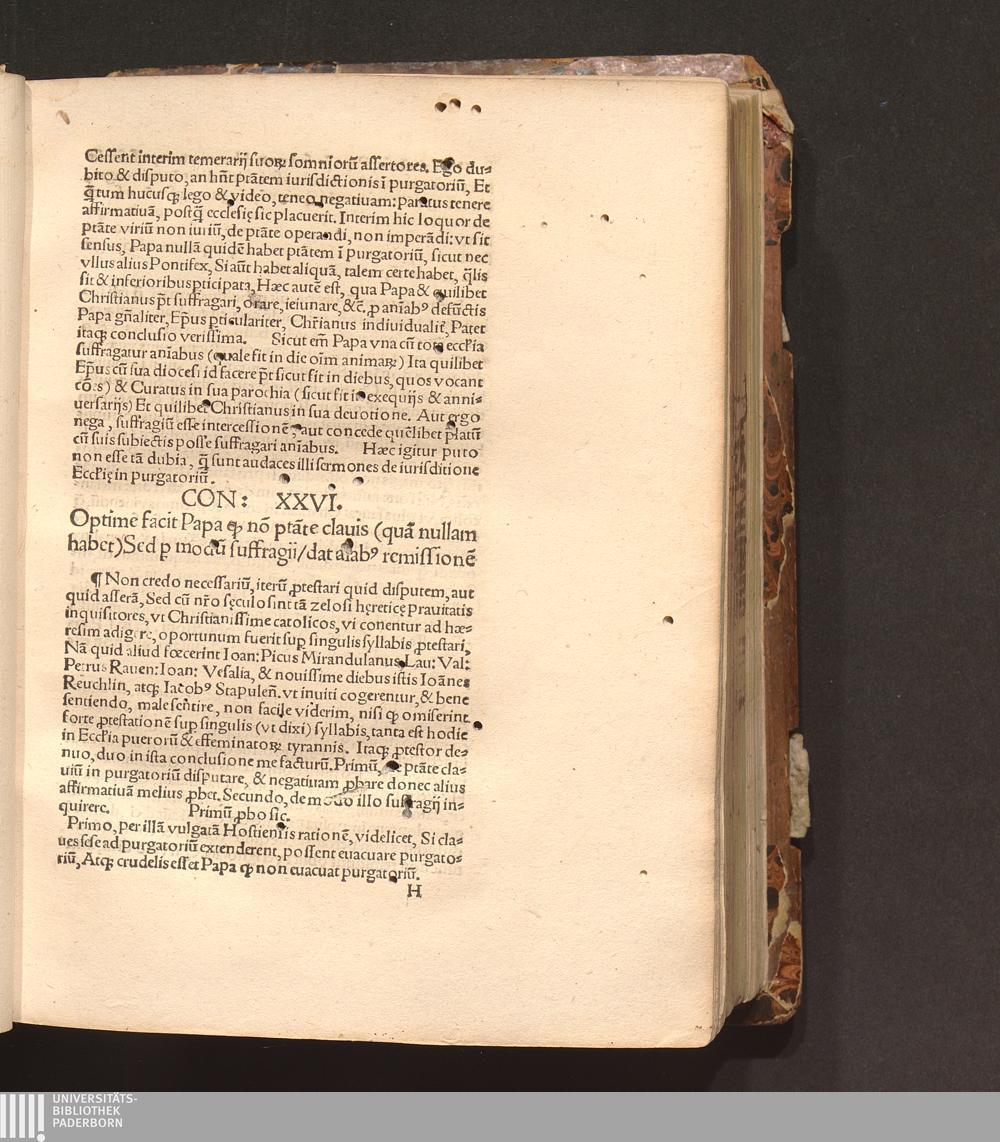 Cessent interim temerarij suoꝝ somniorū assertores. Ego du⸗
bito & disputo, an hn̄t ptātem iurisdictionis ī purgatoriū, Et
q̄tum hucusqꝫ lego & video, teneo negatiuam: paratus tenere
affirmatiuā, postq̄ ecclesię sic placuerit. Interim hic loquor de
ptāte viriū non iuriū, de ptāte operandi, non imperādi: vt sit
sensus, Papa nullā quidē habet ptātem ī purgatoriū, sicut nec
vllus alius Pontifex, Si aūt habet aliquā, talem certe habet, q̄lis
sit & inferioribus pticipata, Hæc autē est, qua Papa & quilibet
Christianus pt̄ suffragari, orare, ieiunare, &c̄, ꝓ anīabꝰ defūctis
Papa gn̄aliter, Ep̄us pticulariter, Chr̄ianus indiuidualit̄, Patet
itaqꝫ conclusio verissima. Sicut em̄ Papa vna cū tota eccl̄ia
suffragatur anīabus (quale fit in die oīm animaꝝ) Ita quilibet
Ep̄us cū sua diocesi id facere pt̄ sicut fit in diebus, quos vocant
cōes) & Curatus in sua parochia (sicut fit in exequijs & anni⸗
uersarijs) Et quilibet Christianus in sua deuotione. Aut ergo
nega, suffragiū esse intercessionē, aut concede quēlibet p̄latū
cū suis subiectis posse suffragari anīabus. Hæc igitur puto
non esse tā dubia, q̄ sunt audaces illi sermones de iurisditione
Eccl̄ię in purgatoriū.
CON: XXVI.
Optime facit Papa ꝙ nō ptāte clauis (quā nullam
habet) Sed ꝑ modū suffragij/dat aīabꝰ remissionē
¶ Non credo necessariū, iterū ꝓtestari quid disputem, aut
quid asserā, Sed cū nr̄o sęculo sint tā zelosi hęreticę prauitatis
inquisitores, vt Christianissime catolicos, vi conentur ad hæ⸗
resim adigere, oportunum fuerit suꝑ singulis syllabis ꝓtestari,
Nā quid aliud fœcerint Ioan: Picus Mirandulanus, Lau: Val:
Petrus Rauen: Ioan: Vesalia, & nouissime diebus istis Ioānes
Reuchlin, atqꝫ Iacobꝰ Stapuleñ. vt inuiti cogerentur, & bene
sentiendo, male sent̄ire, non facile viderim, nisi ꝙ omiserint
forte ꝓtestationē suꝑ singulis (vt dixi) syllabis, tanta est hodie
in Eccl̄ia puerorū & effeminatoꝝ tyrannis. Itaqꝫ ꝓtestor de⸗
nuo, duo in ista conclusione me facturū. Primū, de ptāte cla⸗
uiū in purgatoriū disputare, & negatiuam ꝓbare donec alius
affirmatiuā melius ꝓbet. Secundo, de modo illo suffragij in⸗
quirere. Primū ꝓbo sic.
Primo, per illā vulgatā Hostiensis rationē, videlicet, Si cla⸗
ues sese ad purgatoriū extenderent, possent euacuare purgato⸗
riū, Atqꝫ crudelis esset Papa ꝙ non euacuat purgatoriū.
H
UNIVERSITÄTS-
BIBLIOTHEK
PADERBORN